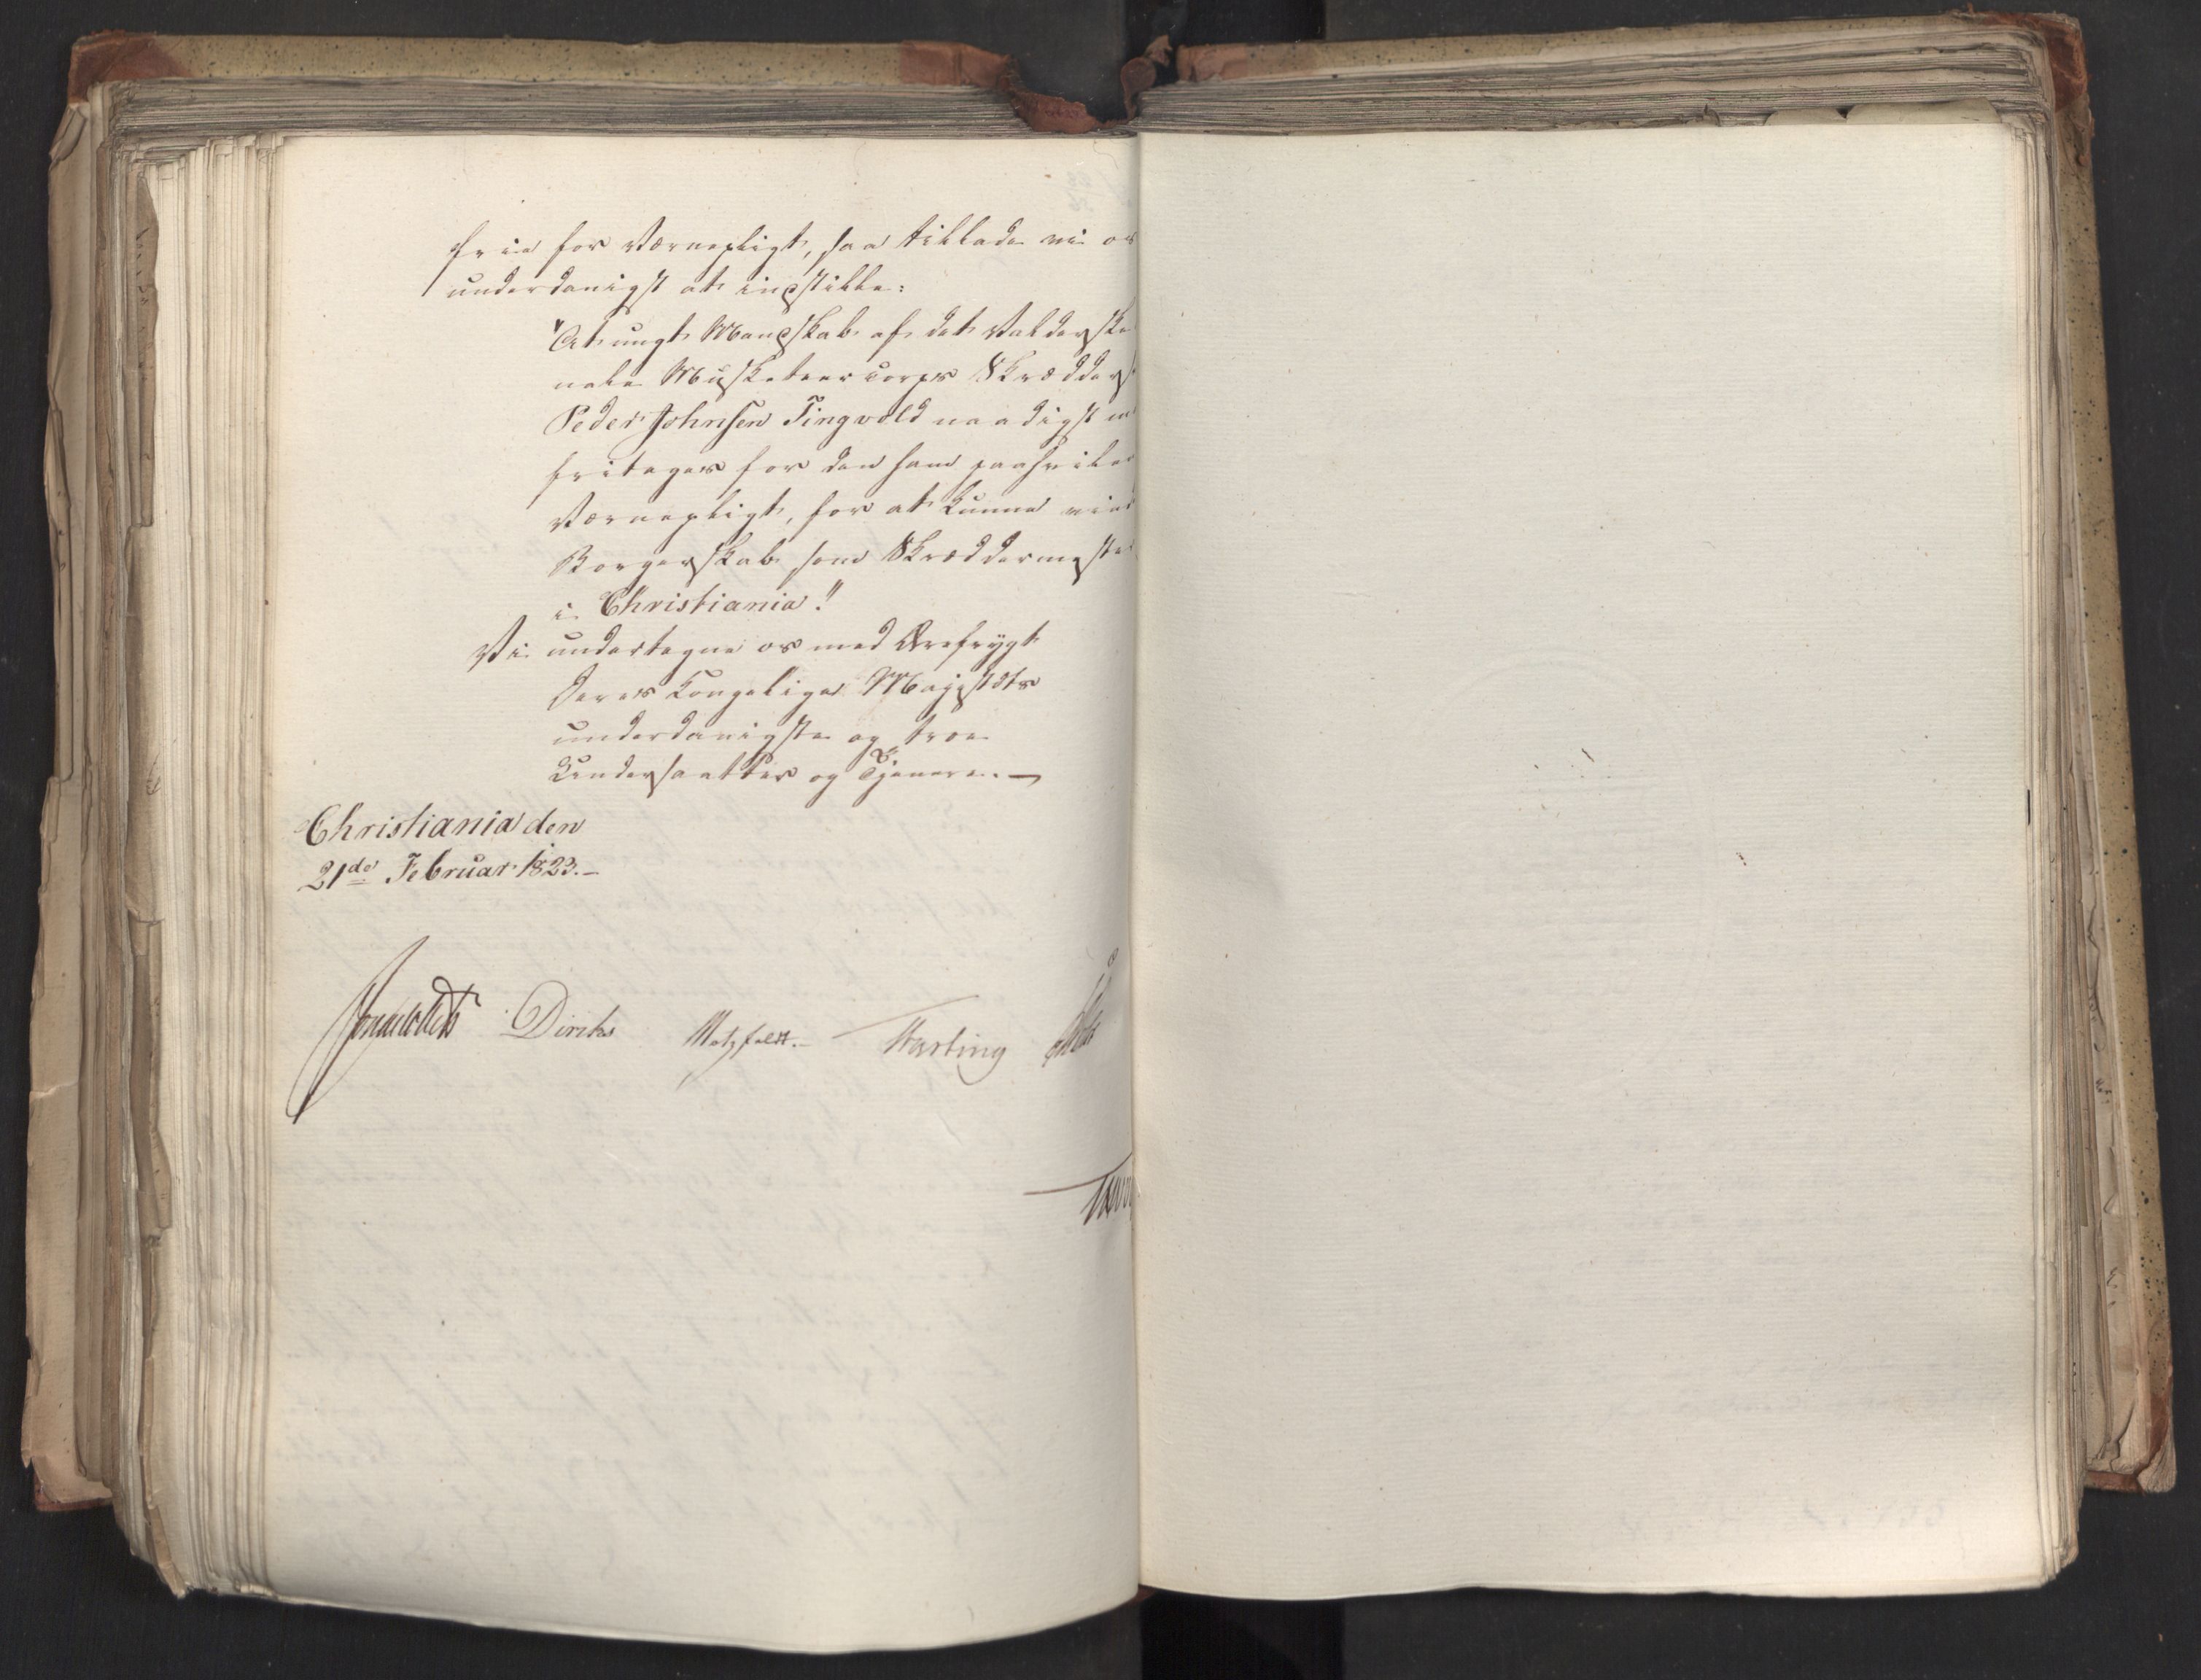 frie for Værnepligt, saa tillade vi os
underdanigst at indstille:
"At ungt Mandskab af det Valderske
nale Musketeercorps Skrædders
Peder Johnsen Tingvold naadigst m
fritages for den ham paahvilen
Værnepligt, for at kunne vind
Borgerskab som Skræddermester
i Christiania."
Vi undertegne os med Ærefrygt
Deres Kongelige Majestæts
underdanigste og troe
Undersaatter og Tjenere. —
Christiania den
21de Februar 1823.—
Sommerhielm Diriks Motzfeldt. Krefting